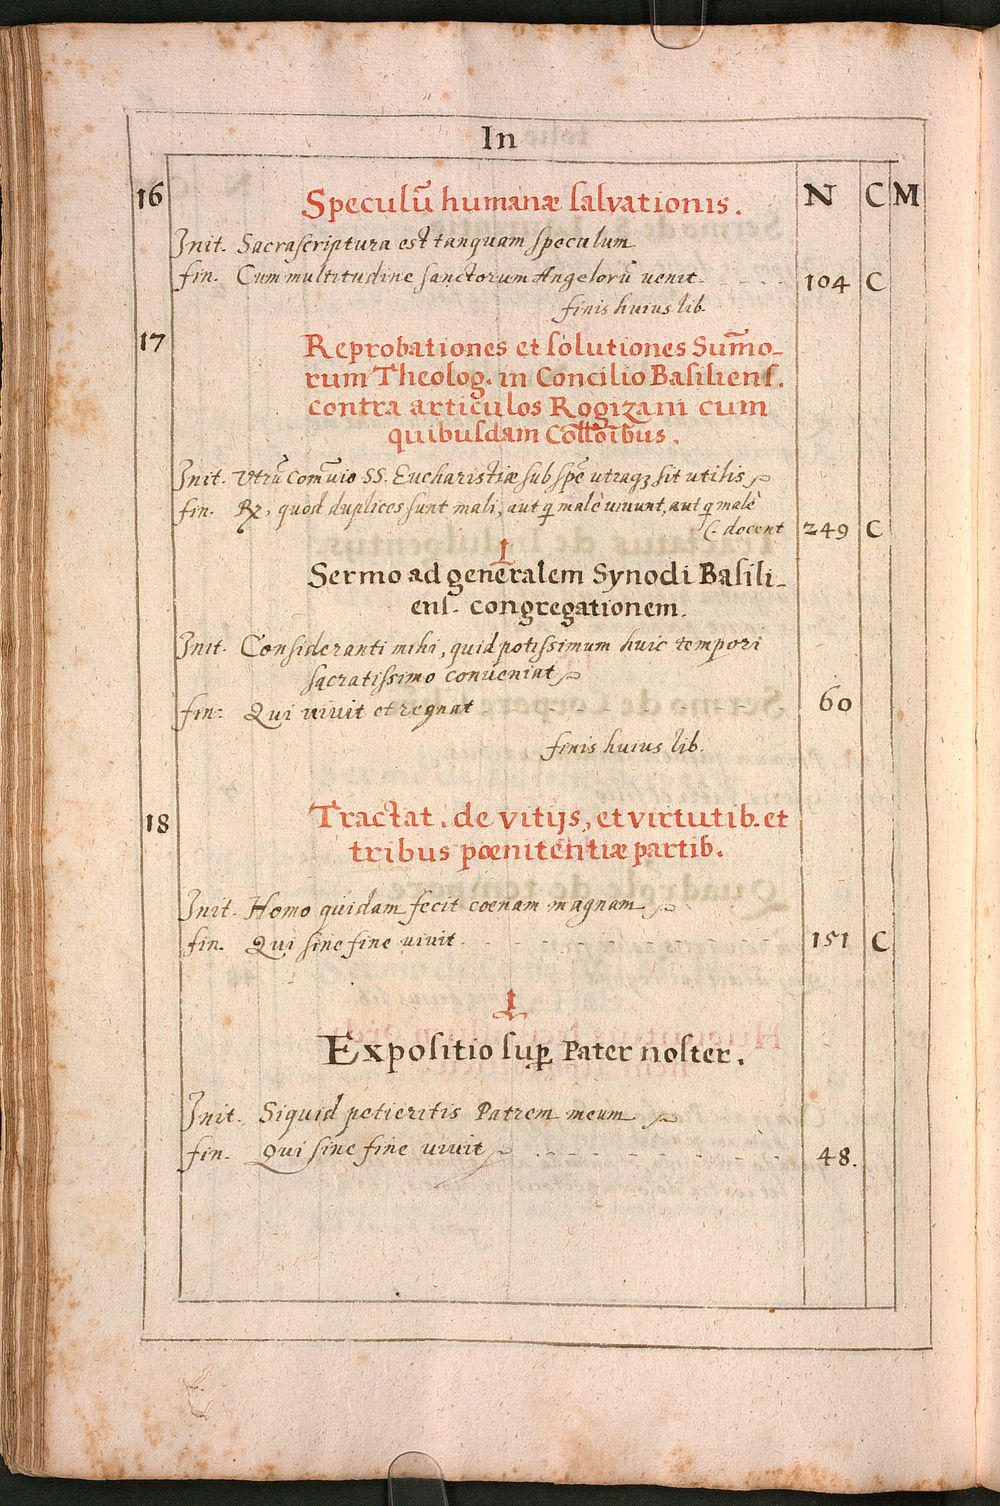 In
N C M
16 Speculũ humanæ salvationis.
Init. Sacra scriptura est tanquam speculum
fin. Cum multitudine sanctorum Angelorũ venit. 104 C
finis huius lib.
17 Reprobationes et solutiones Sum̃o-
rum Theolog. in Concilio Basiliens.
contra articulos Rogizani cum
quibusdam
Init. Vtrũ Com̃unio SS. Eucharistiæ sub spẽ utraqȝ sit utilis
fin. R̷. quod duplices sunt mali, aut q̃ malè uiuunt, aut q̃ malè
docent 249 C
1
Sermo ad generalem Synodi Basili-
ens. congregationem.
Init. Consideranti mihi, quid potissimum huic tempori
sacratissimo conveniat
fin: Qui uiuit et regnat 60
finis huius lib.
18 Tractat. de vitijs, et virtutib. et
tribus pœnitentiæ partib.
Init. Homo quidam fecit cœnam magnam
fin. Qui sine fine vivit 151 C
1
Expositio sup̱ Pater noster.
Init. Siquid petieritis Patrem meum
fin. Qui sine fine vivit 48.